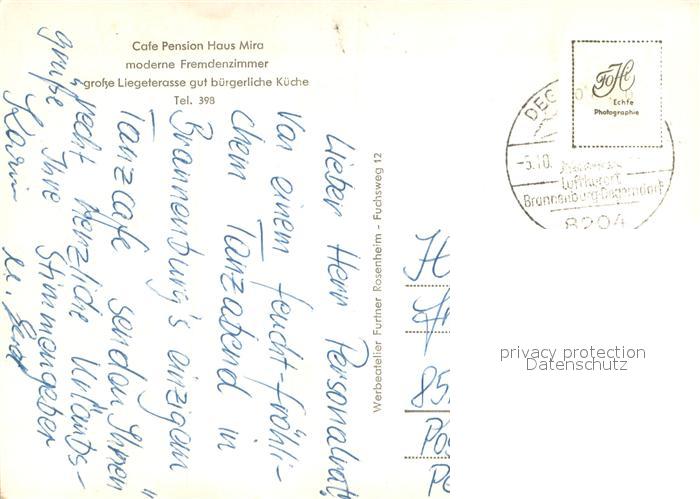 Cafe Pension Haus Mira
moderne Fremdenzimmer
große Liegeterasse gut bürgerliche Küche
Tel. 398
Lieber Herr Personalrat!
Von einem feucht-fröhli-
chem Tanzabend in
Brannenburg's einzigem
Tanzcafe senden Ihnen
recht herzliche Urlaubs-
grüße Ihre Stimmengeber
Karin u.
Werbeatelier Furtner Rosenheim - Fuchsweg 12
FoHi
Echte
Photographie
DEG
-5.10.
Luftkurort
Brannenburg-Degerndorf
8204
H
85
Po
privacy protection
Datenschutz